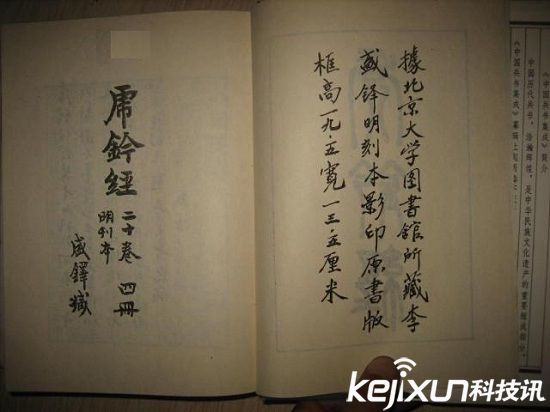 《中国兵书集成》简介
中国历代兵书，浩瀚辉煌，是中华民族文化遗产的重要组成部分，
《中国兵书集成》
據北京大学图書館所藏李
盛铎明刻本影印原書版
框高一九·五寬一三·五厘米
虎鈐經 二十卷 四冊
明刊本
盛鐸藏
kejixun科技讯